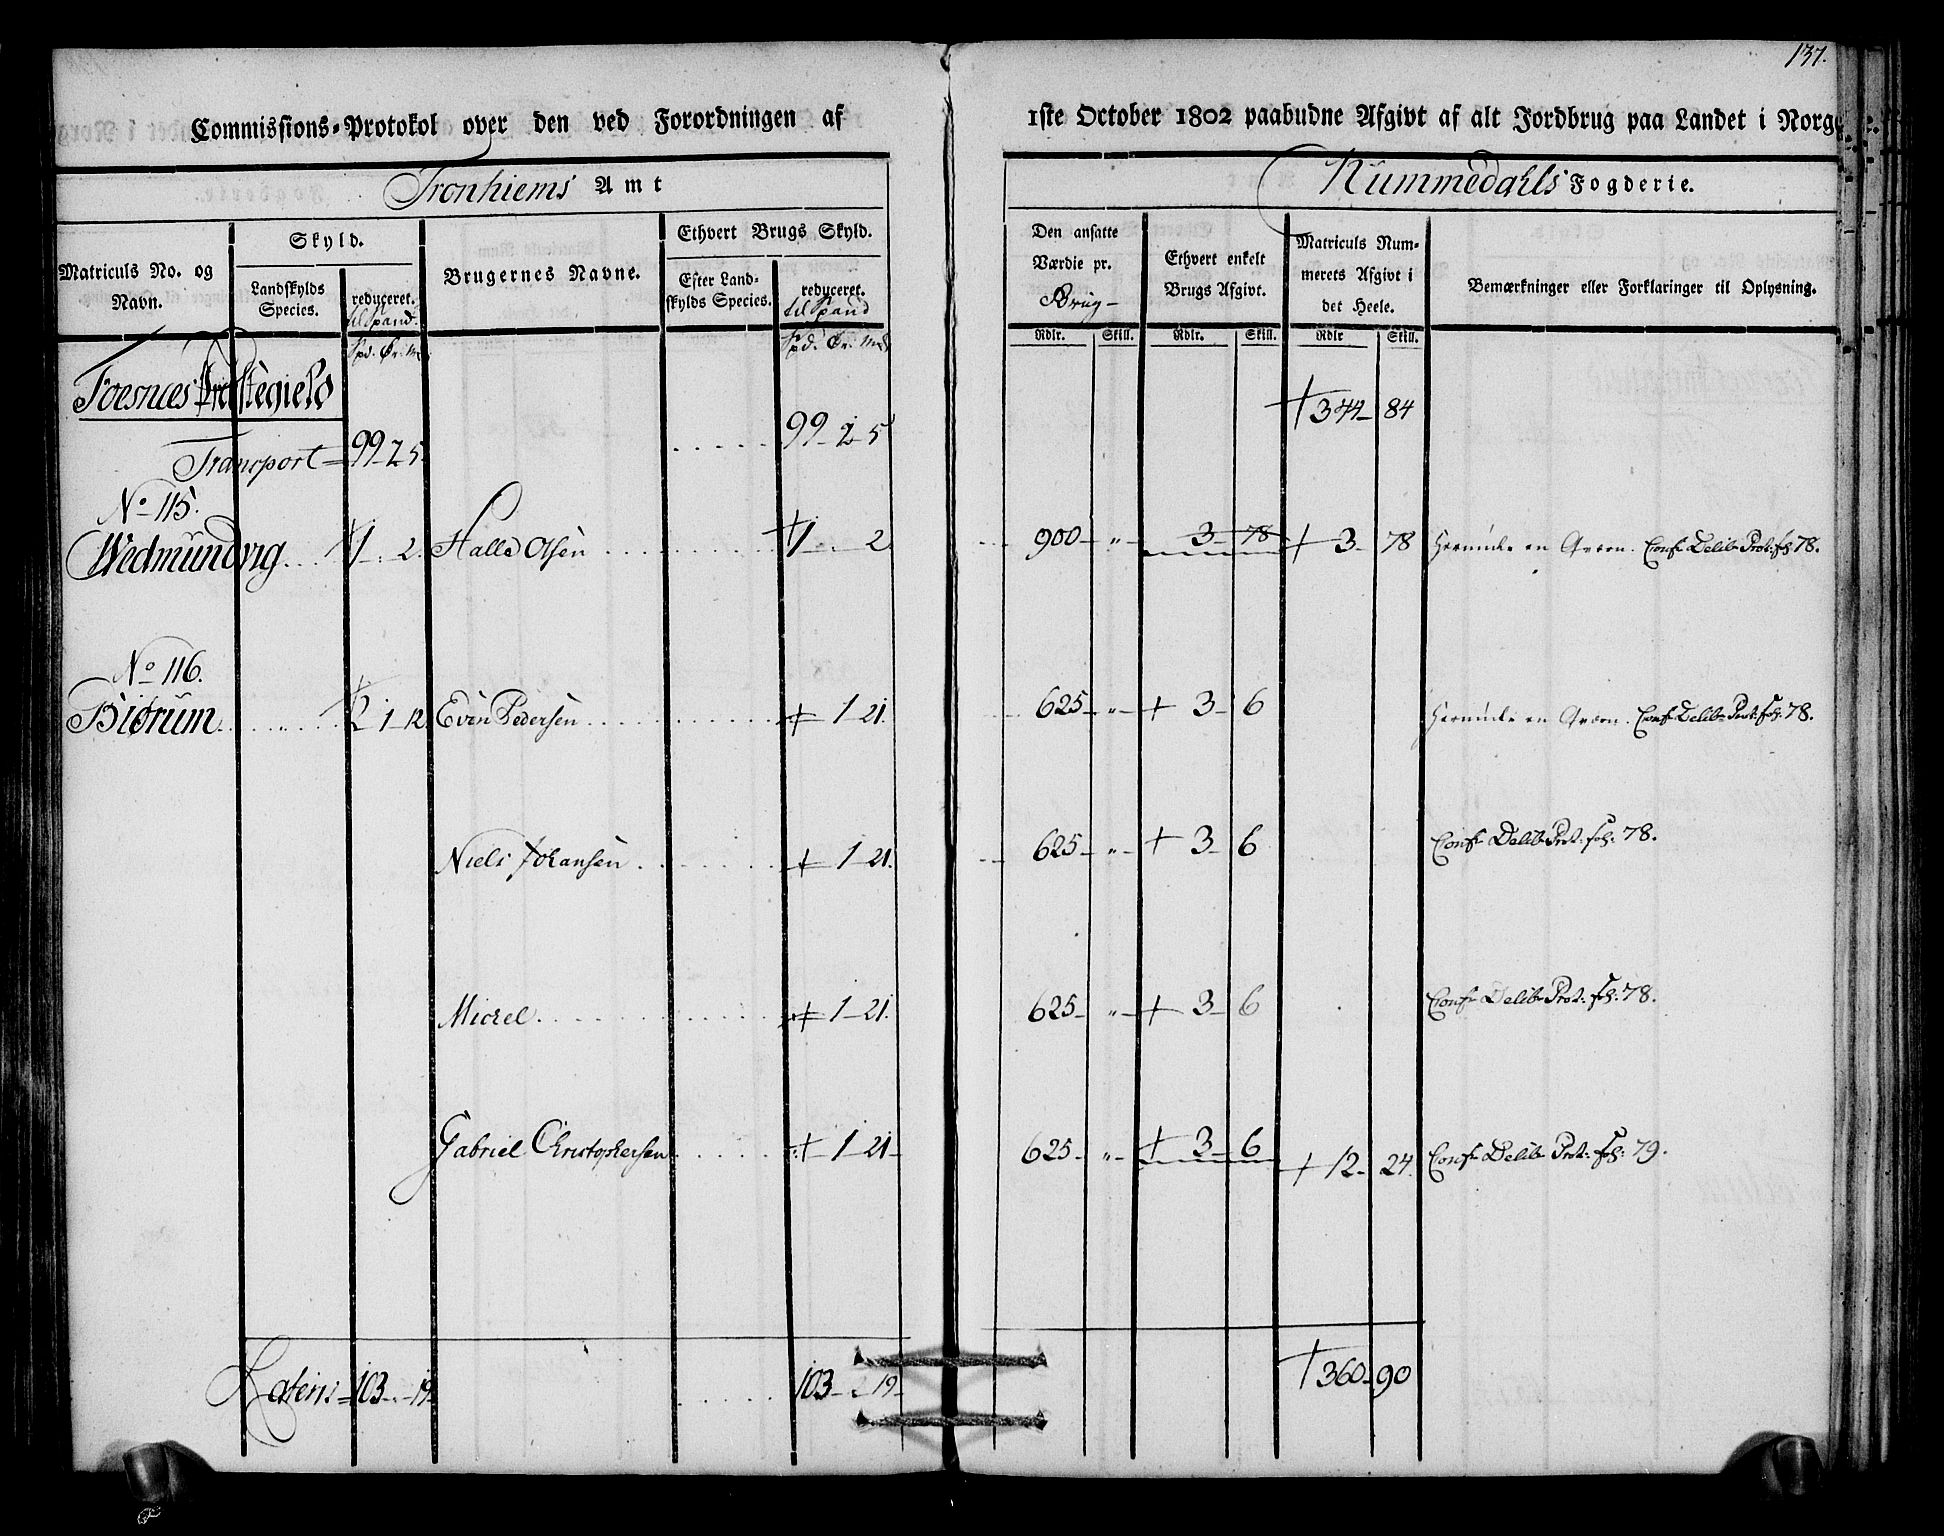 137.
Commissions-Protokol over den ved Forordningen af 1ste October 1802 paabudne Afgivt af alt Jordbrug paa Landet i Norge
Tronhiems Amt
Nummedahls Fogderie.
Matriculs No. og Navn.
Skyld.
Landskylds Species.
reduceret. til Spand.
Brugernes Navne.
Ethvert Brugs Skyld.
Efter Landskylds Species.
reduceret. til Spand
Den ansatte Værdie pr. Brug
Ethvert enkelt Brugs Afgivt.
Matriculs Nummerets Afgivt i det Heele.
Bemærkninger eller Forklaringer til Oplysning.
Spd. Ør. Mk
Spd. Ør. Mk
Rdlr. Skill. Rdlr. Skill. Rdlr Skill.
Foesnæs Præstegield
† 344 - 84
Transport = 99 - 2 5. 99 - 2 - 5
No 115.
Wedmundvig 1 - . 2. Halle Olsen 1 . 2 900 - „ - 3 - 78 + 3 - 78 en Qværn. Conf. Delib. Prot: fol: 78.
No 116.
Biörum 2 1 - 12. Even Pedersen + 1 - 21. 625 - „ - + 3 - 6 en Qværn. Conf. Delib. Prot: fol: 78.
Niels Johansen + 1 - 21. 625 - „ - + 3 - 6 Conf. Delib. Prot: fol: 78.
Michel + 1 - 21. 625 - „ - + 3 - 6 Conf. Delib. Prot: fol: 78.
Gabriel Christophersen + 1 - 21 - 625 - „ - + 3 - 6 + 12 - 24. Conf. Delib. Prot: fol: 79.
Lateris = 103 - . - 19 103 - 19 - † 360 - 90